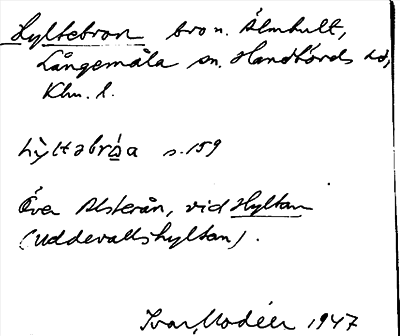 Hyltebron bro n. Älmhult,
Långemåla sn. Handbörds hd,
Klm. l.
hỳltəbrǻa s. 159
Över Alsterån, vid Hyltan
(Uddevallshyltan).
Ivar Modéer 1947